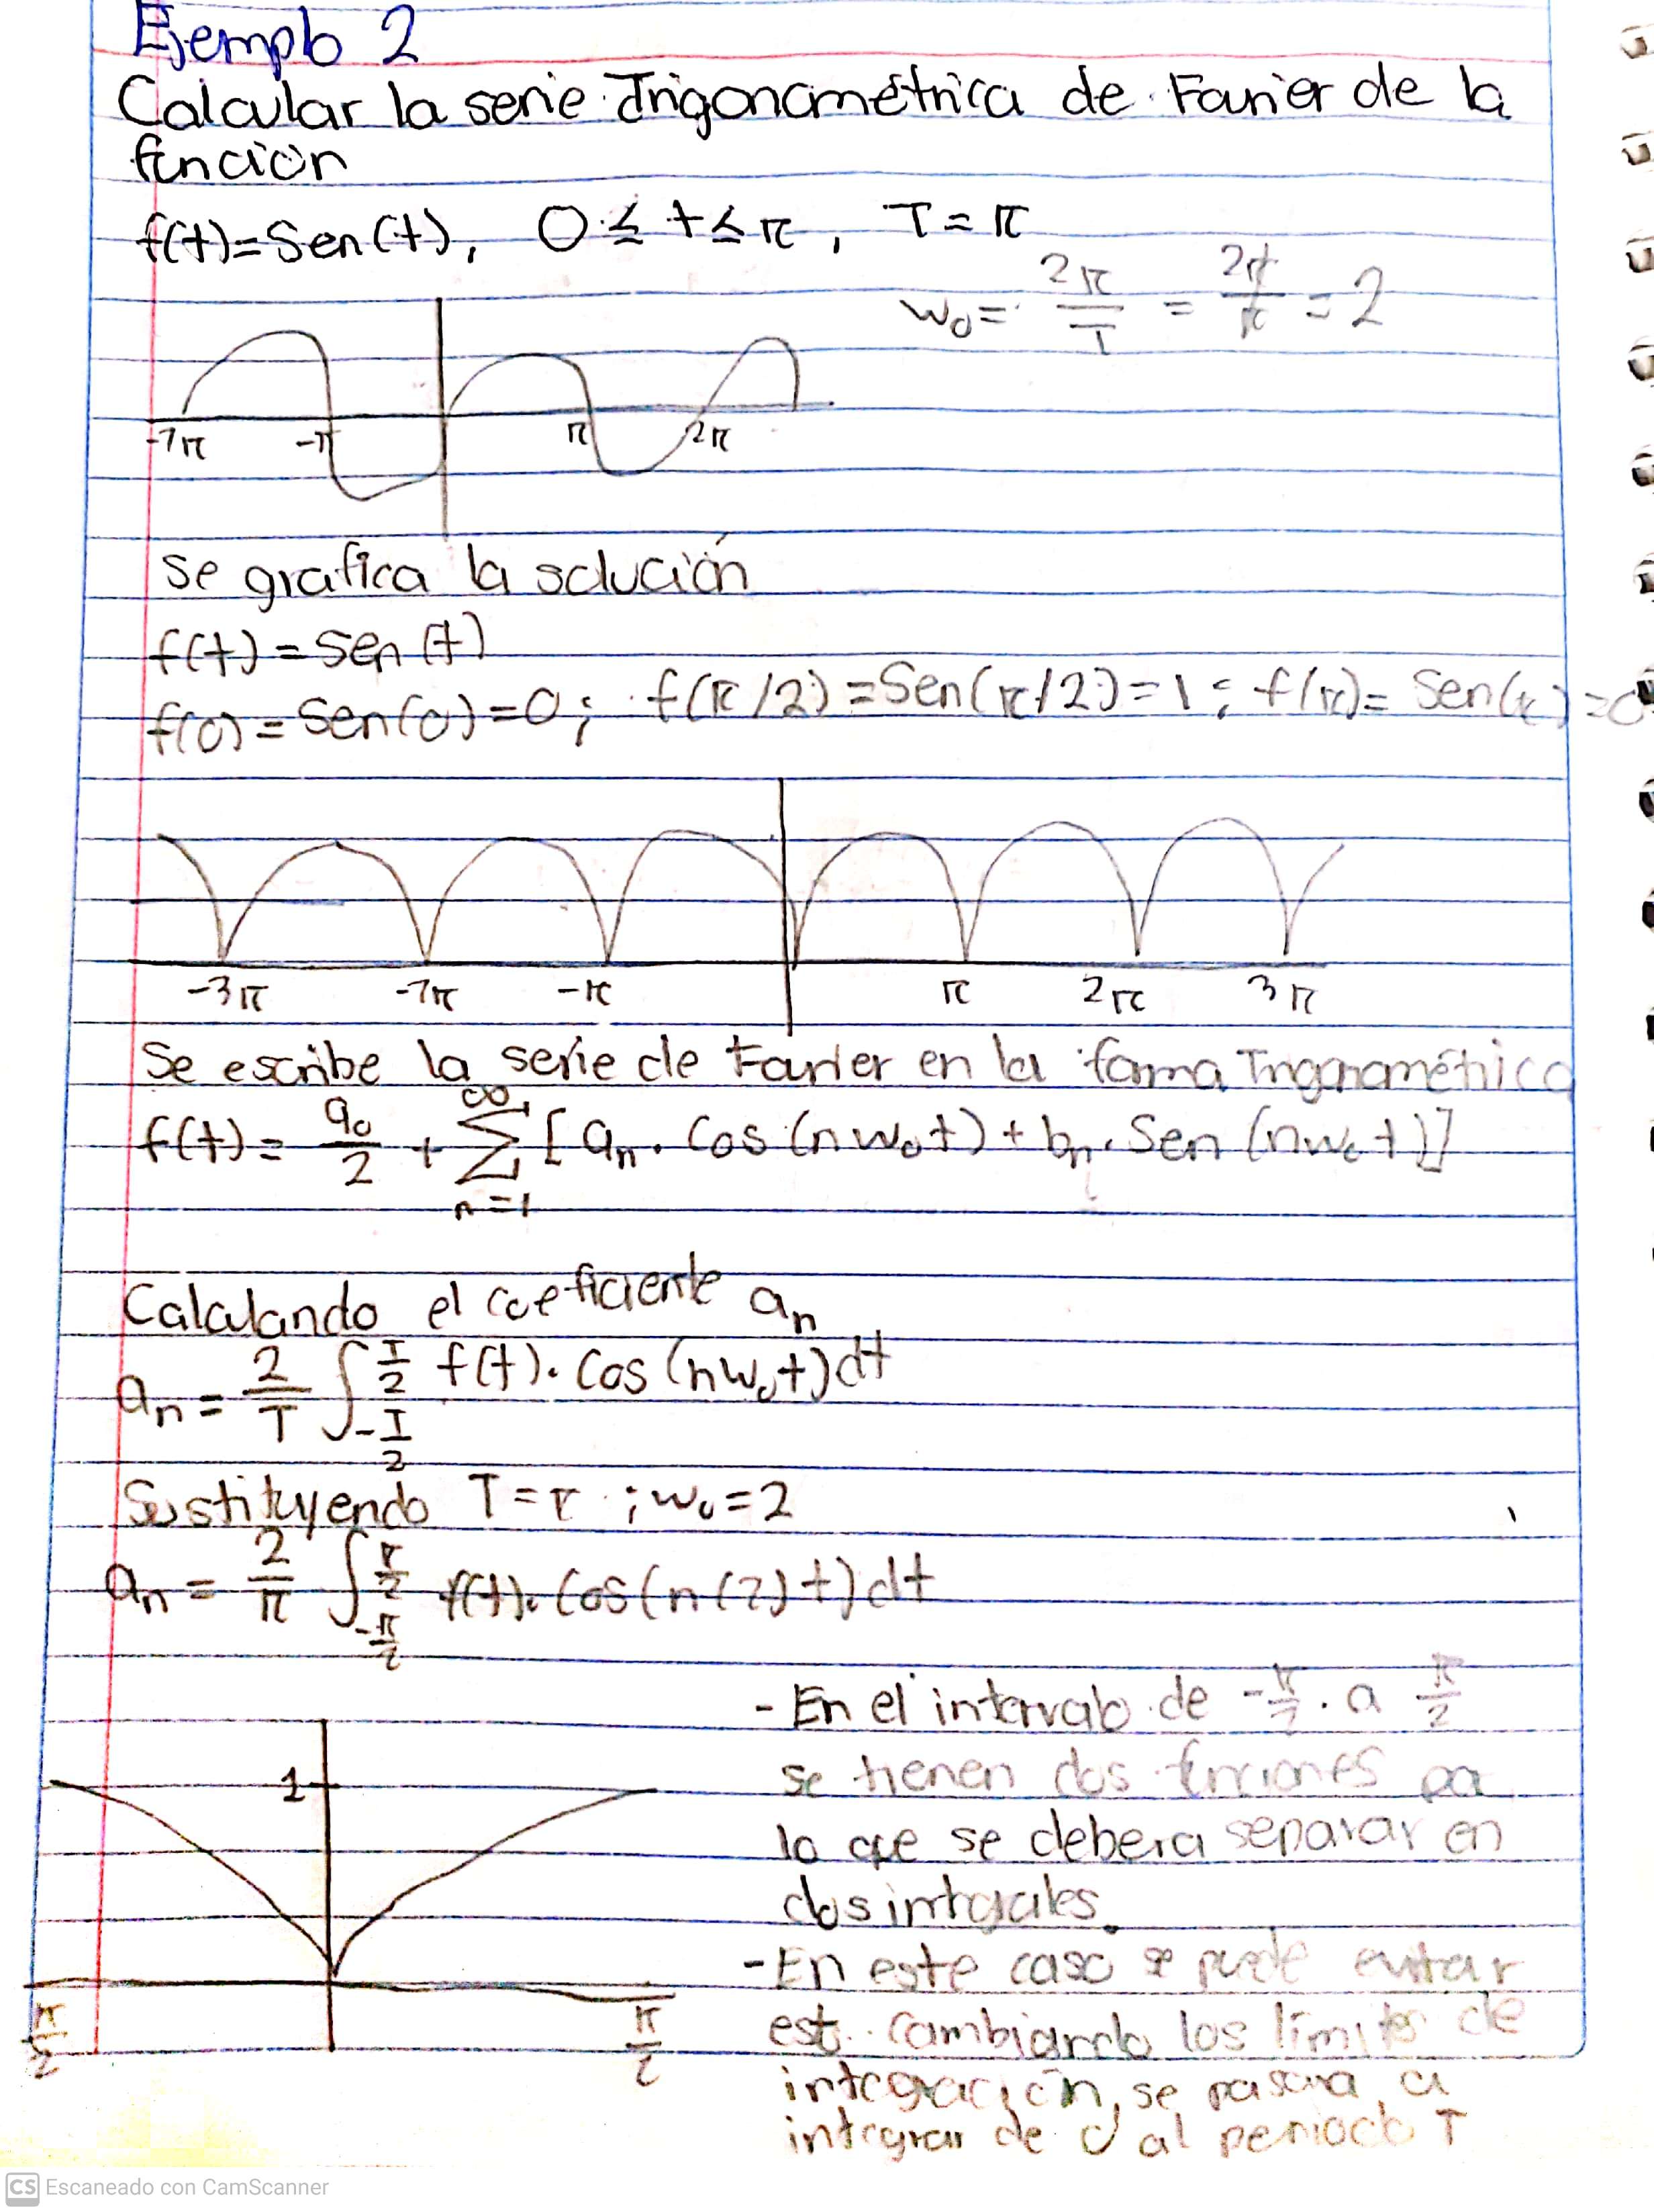 Ejemplo 2
Calcular la serie Trigonométrica de Fourier de la
función
f(t)=Sen(t), 0 ≤ t ≤ π, T = π
w₀ = 2π/T = 2π/π = 2
-2π -π π 2π
se grafica la solución
f(t) = Sen(t)
f(0) = Sen(0) = 0; f(π/2) = Sen(π/2) = 1; f(π) = Sen(π) = 0
-3π -2π -π π 2π 3π
Se escribe la serie de Fourier en la forma Trigonométrica
f(t) = a₀/2 + ∑ₙ₌₁^∞ [aₙ · Cos(nw₀t) + bₙ · Sen(nw₀t)]
Calculando el coeficiente aₙ
aₙ = 2/T ∫_{-T/2}^{T/2} f(t) · Cos(nw₀t)dt
Sustituyendo T = π ; w₀ = 2
aₙ = 2/π ∫_{-π/2}^{π/2} f(t) · Cos(n(2)t)dt
- En el intervalo de -π/2 · a π/2
se tienen dos funciones por
lo que se debera separar en
dos integrales.
- En este caso se puede evitar
esto cambiando los límites de
integración, se pasara a
integrar de 0 al periodo T
1
-π/2 π/2
CS Escaneado con CamScanner